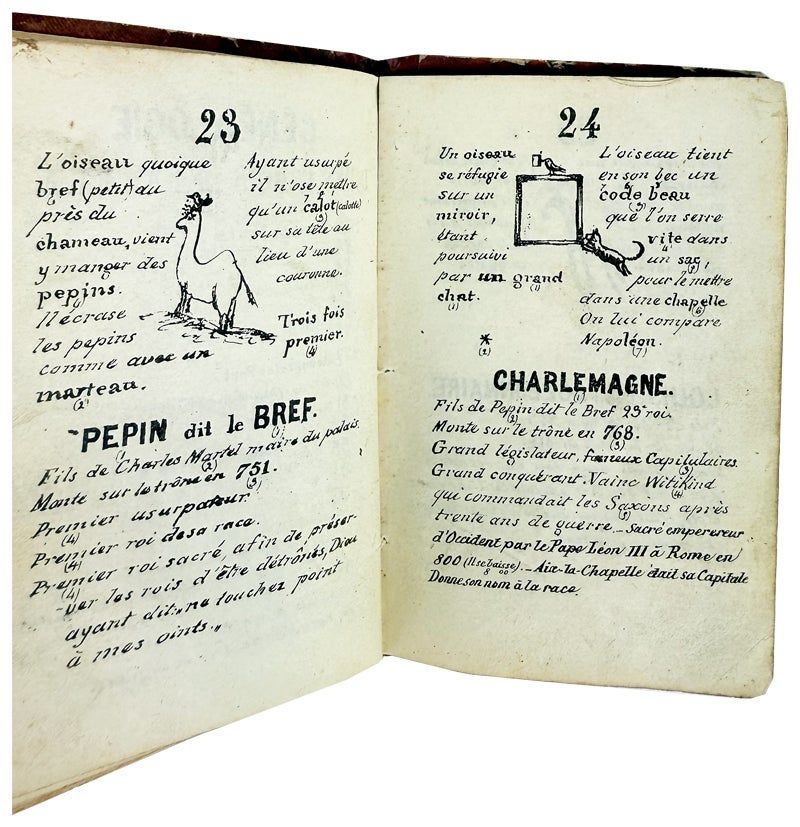 23
L'oiseau quoique
bref (petit) au
près du
chameau, vient
y manger des
pepins.
Il écrase
les pepins
comme avec un
marteau.
(2)
Ayant usurpé
il n'ose mettre
qu'un calot (calotte)
(3)
sur sa tête au
lieu d'une
couronne.
Trois fois
premier.
(4)
PEPIN dit le BREF.
(1)
Fils de Charles Martel maire du palais.
(2)
Monte sur le trône en 751.
(3)
Premier usurpateur
(4)
Premier roi de sa race.
(4)
Premier roi sacré, afin de préser-
(4)
ver les rois d'être détrônés, Dieu
ayant dit: „ne touchez point
à mes oints.„
24
Un oiseau
se réfugie
sur un
miroir,
étant
poursuivi
par un grand
(1)
chat.
(1)
*
(2)
L'oiseau tient
en son bec un
code beau
(3)
que l'on serre
vite dans
4
un sac,
5
pour le mettre
dans une chapelle
(6)
On lui compare
Napoléon.
(7)
CHARLEMAGNE.
(1)
Fils de Pepin dit le Bref 23e roi.
(2)
Monte sur le trône en 768.
(3)
Grand législateur, fameux Capitulaires.
(3)
Grand conquérant. Vainc Witikind
(4)
qui commandait les Saxons après
(5)
trente ans de guerre. _ Sacré emperereur
d'Occident par le Pape Léon III à Rome en
800 (Il se baisse). _ Aix-la-Chapelle était sa Capitale
8 00
Donne son nom à la race.